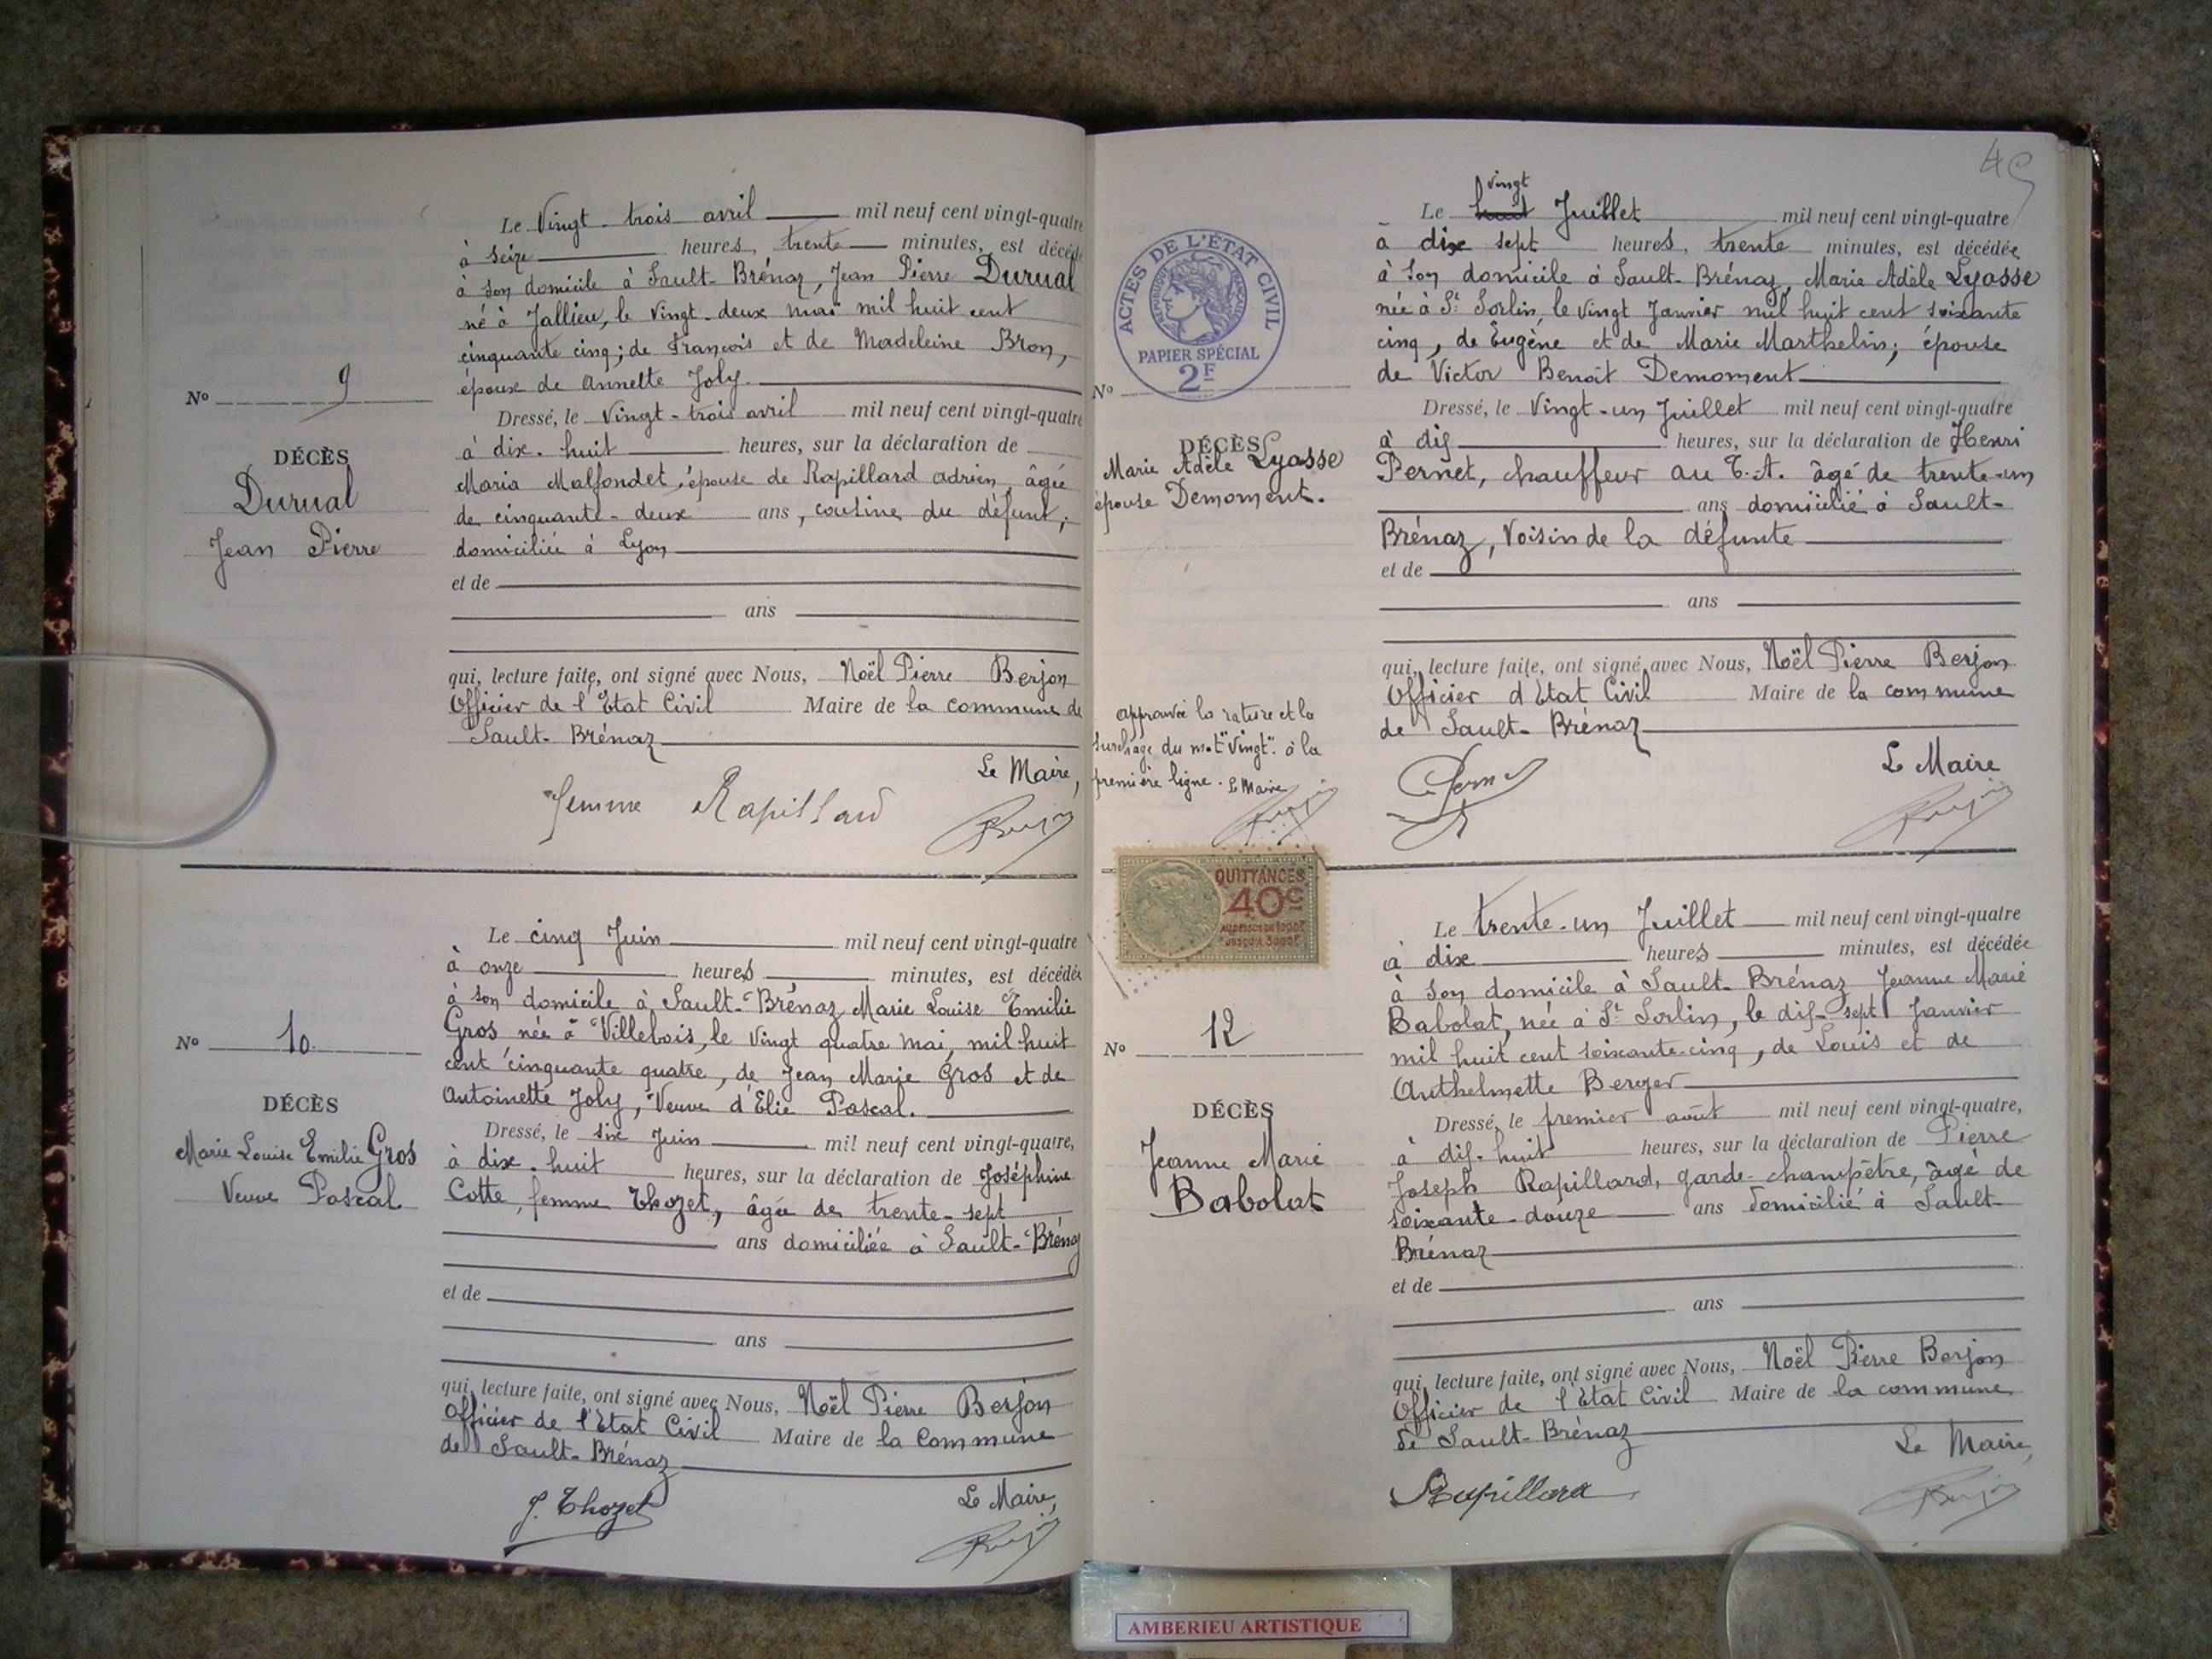 Le Vingt-trois avril mil neuf cent vingt-quatre
à seize heures, trente minutes, est décédé
à son domicile à Sault-Brénaz, Jean Pierre Durual
né à Jallieu, le Vingt-deux mai mil huit cent
cinquante cinq; de François et de Madeleine Bron,
époux de Annette Joly.
Nº 9
Dressé, le Vingt-trois avril mil neuf cent vingt-quatre
à dix-huit heures, sur la déclaration de
Maria Malfondet, épouse de Rapillard Adrien, âgée
de cinquante-deux ans, cousine du défunt,
domiciliée à Lyon
DÉCÈS
Durual
Jean Pierre
et de
ans
qui, lecture faite, ont signé avec Nous, Noël Pierre Berjon
Officier de l'Etat Civil Maire de la commune de
Sault-Brénaz
Le Maire,
femme Rapillard
Le cinq Juin mil neuf cent vingt-quatre
à onze heures minutes, est décédée
à son domicile à Sault-Brénaz Marie Louise Emilie
Gros née à Villebois, le Vingt quatre mai, mil huit
cent cinquante quatre, de Jean Marie Gros et de
Antoinette Joly, Veuve d'Elie Pascal.
Nº 10
DÉCÈS
Marie Louise Emilie Gros
Veuve Pascal
Dressé, le six Juin mil neuf cent vingt-quatre,
à dix-huit heures, sur la déclaration de Joséphine
Cotte, femme Thozet, âgée de trente-sept
ans domiciliée à Sault-Brénaz
et de
ans
qui, lecture faite, ont signé avec Nous, Noël Pierre Berjon
Officier de l'Etat Civil Maire de la Commune
de Sault-Brénaz
Le Maire,
J. Thozet
45
ACTES DE L'ÉTAT CIVIL
RÉPUBLIQUE FRANÇAISE
PAPIER SPÉCIAL
2F
vingt
Le huit Juillet mil neuf cent vingt-quatre
à dix sept heures, trente minutes, est décédée
à son domicile à Sault-Brénaz, Marie Adèle Lyasse
née à St Sorlin, le vingt Janvier mil huit cent soixante
cinq, de Eugène et de Marie Marthelin; épouse
de Victor Benoit Demoment
Nº
DÉCÈS
Marie Adèle Lyasse
épouse Demoment.
Dressé, le Vingt-un Juillet mil neuf cent vingt-quatre
à dix heures, sur la déclaration de Henri
Pernet, chauffeur au T.A. âgé de trente-un
ans domicilié à Sault-
Brénaz, Voisin de la défunte
et de
ans
qui, lecture faite, ont signé avec Nous, Noël Pierre Berjon
Officier d'Etat Civil Maire de la commune
de Sault-Brénaz
Le Maire
approuvée la rature et la
surchage du mot "Vingt" à la
première ligne. Le Maire
QUITTANCES
40c
AU DESSUS DE 1000F
JUSQU'A 3000F
Le trente-un Juillet mil neuf cent vingt-quatre
à dix heures minutes, est décédée
à son domicile à Sault-Brénaz Jeanne Marie
Babolat, née à St Sorlin, le dix-sept Janvier
mil huit cent soixante-cinq, de Louis et de
Anthelmette Berger
Nº 12
DÉCÈS
Jeanne Marie
Babolat
Dressé, le premier août mil neuf cent vingt-quatre,
à dix-huit heures, sur la déclaration de Pierre
Joseph Rapillard, garde-champêtre, âgé de
soixante-douze ans domicilié à Sault-
Brénaz
et de
ans
qui, lecture faite, ont signé avec Nous, Noël Pierre Berjon
Officier de l'Etat Civil Maire de la commune
de Sault-Brénaz
Le Maire,
Rapillard
AMBERIEU ARTISTIQUE